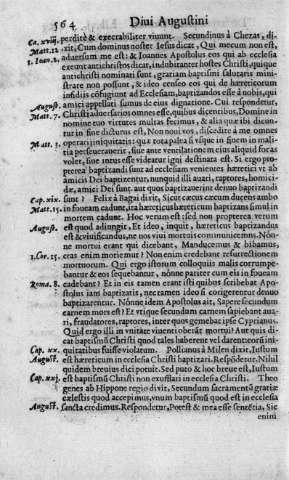 564 Diui Augustini
Ca. xviij. perditè & execrabiliter viuunt. Secundinus à Chezas, di-
Matt. 12. xit, Cum dominus noster Iesus dicat, Qui mecum non est,
1. Ioan. 2. aduersum me est: & Ioannes Apostolus eos qui ab ecclesia
exeunt antichristos dicat, indubitanter hostes Christi, quique
antichristi nominati sunt, gratiam baptismi salutaris mini-
strare non possunt, & ideo censeo eos qui de hæreticorum
insidiis cōfugiunt ad Ecclesiam, baptizandos esse à nobis, qui
August. amici appellati sumus de eius dignatione. Cui respondetur,
Matt. 7. Christi aduersarios omnes esse, quibus dicentibus, Domine in
nomine tuo virtutes multas fecimus, & alia quæ ibi dicun-
tur in fine dicturus est, Non noui vos, discedite à me omnes
Matt. 3. operarij iniquitatis: quæ tota palea si vsque in finem in mali-
tia perseuerauerit, siue ante ventilationem etiam aliquid foras
volet, siue intus esse videatur igni destinata est. Si ergo pro-
pterea baptizandi sunt ad ecclesiam venientes hæretici vt ab
amicis Dei baptizentur, nunquid illi auari, raptores, homici-
dæ, amici Dei sunt, aut quos baptizauerint denuo baptizandi
Cap. xix. sunt? Felix à Bagai dixit, Sicut cæcus cæcum ducens ambo
Matt. 15. in foueam cadunt, ita hæreticus hæreticum baptizans simul in
mortem cadunt. Hoc verum est sed non propterea verum
August. est quod adiungit, Et ideo, inquit, hæreticus baptizandus
est & viuificandus, ne nos viui mortuis communicemus. Nón-
ne mortui erant qui dicebant, Manducemus & bibamus,
1. Cor. 15. cras enim moriemur? Non enim credebant resurrectionem
mortuorum. Qui ergo istorum colloquiis malis corrumpe-
bantur & eos sequebantur, nónne pariter cum eis in foueam
Roma. 8. cadebant? Et in eis tamen erant isti quibus scribebat Apo-
stolus iam baptizatis, nec tamen ideo si corrigerentur denuo
baptizarentur. Nónne idem Apostolus ait, Sapere secundum
carnem mors est? Et vtique secundum carnem sapiebant aua-
ri, fraudatores, raptores, inter quos gemebat ipse Cyprianus.
Quid ergo illi in vnitate viuenti oberāt mortui? Aut quis di-
cat baptismū Christi quod tales haberent vel darent eorū ini-
Cap. xx. quitatibus fuisse violatum. Pollianus à Milen dixit, Iustum
August. est hæreticum in ecclesia Christi baptizari. Respondetur. Nihil
quidem breuius dici potuit. Sed puto & hoc breue est, Iustum
Cap. xxj. est baptismū Christi non exufflari in ecclesia Christi. Theo
genes ab Hippone regio dixit, Secundum sacramentū gratiæ
cælestis quod accepimus, vnum baptismū quod est in ecclesia
August. sancta credimus. Respondetur, Potest & mea esse sentētia, Sic
enim